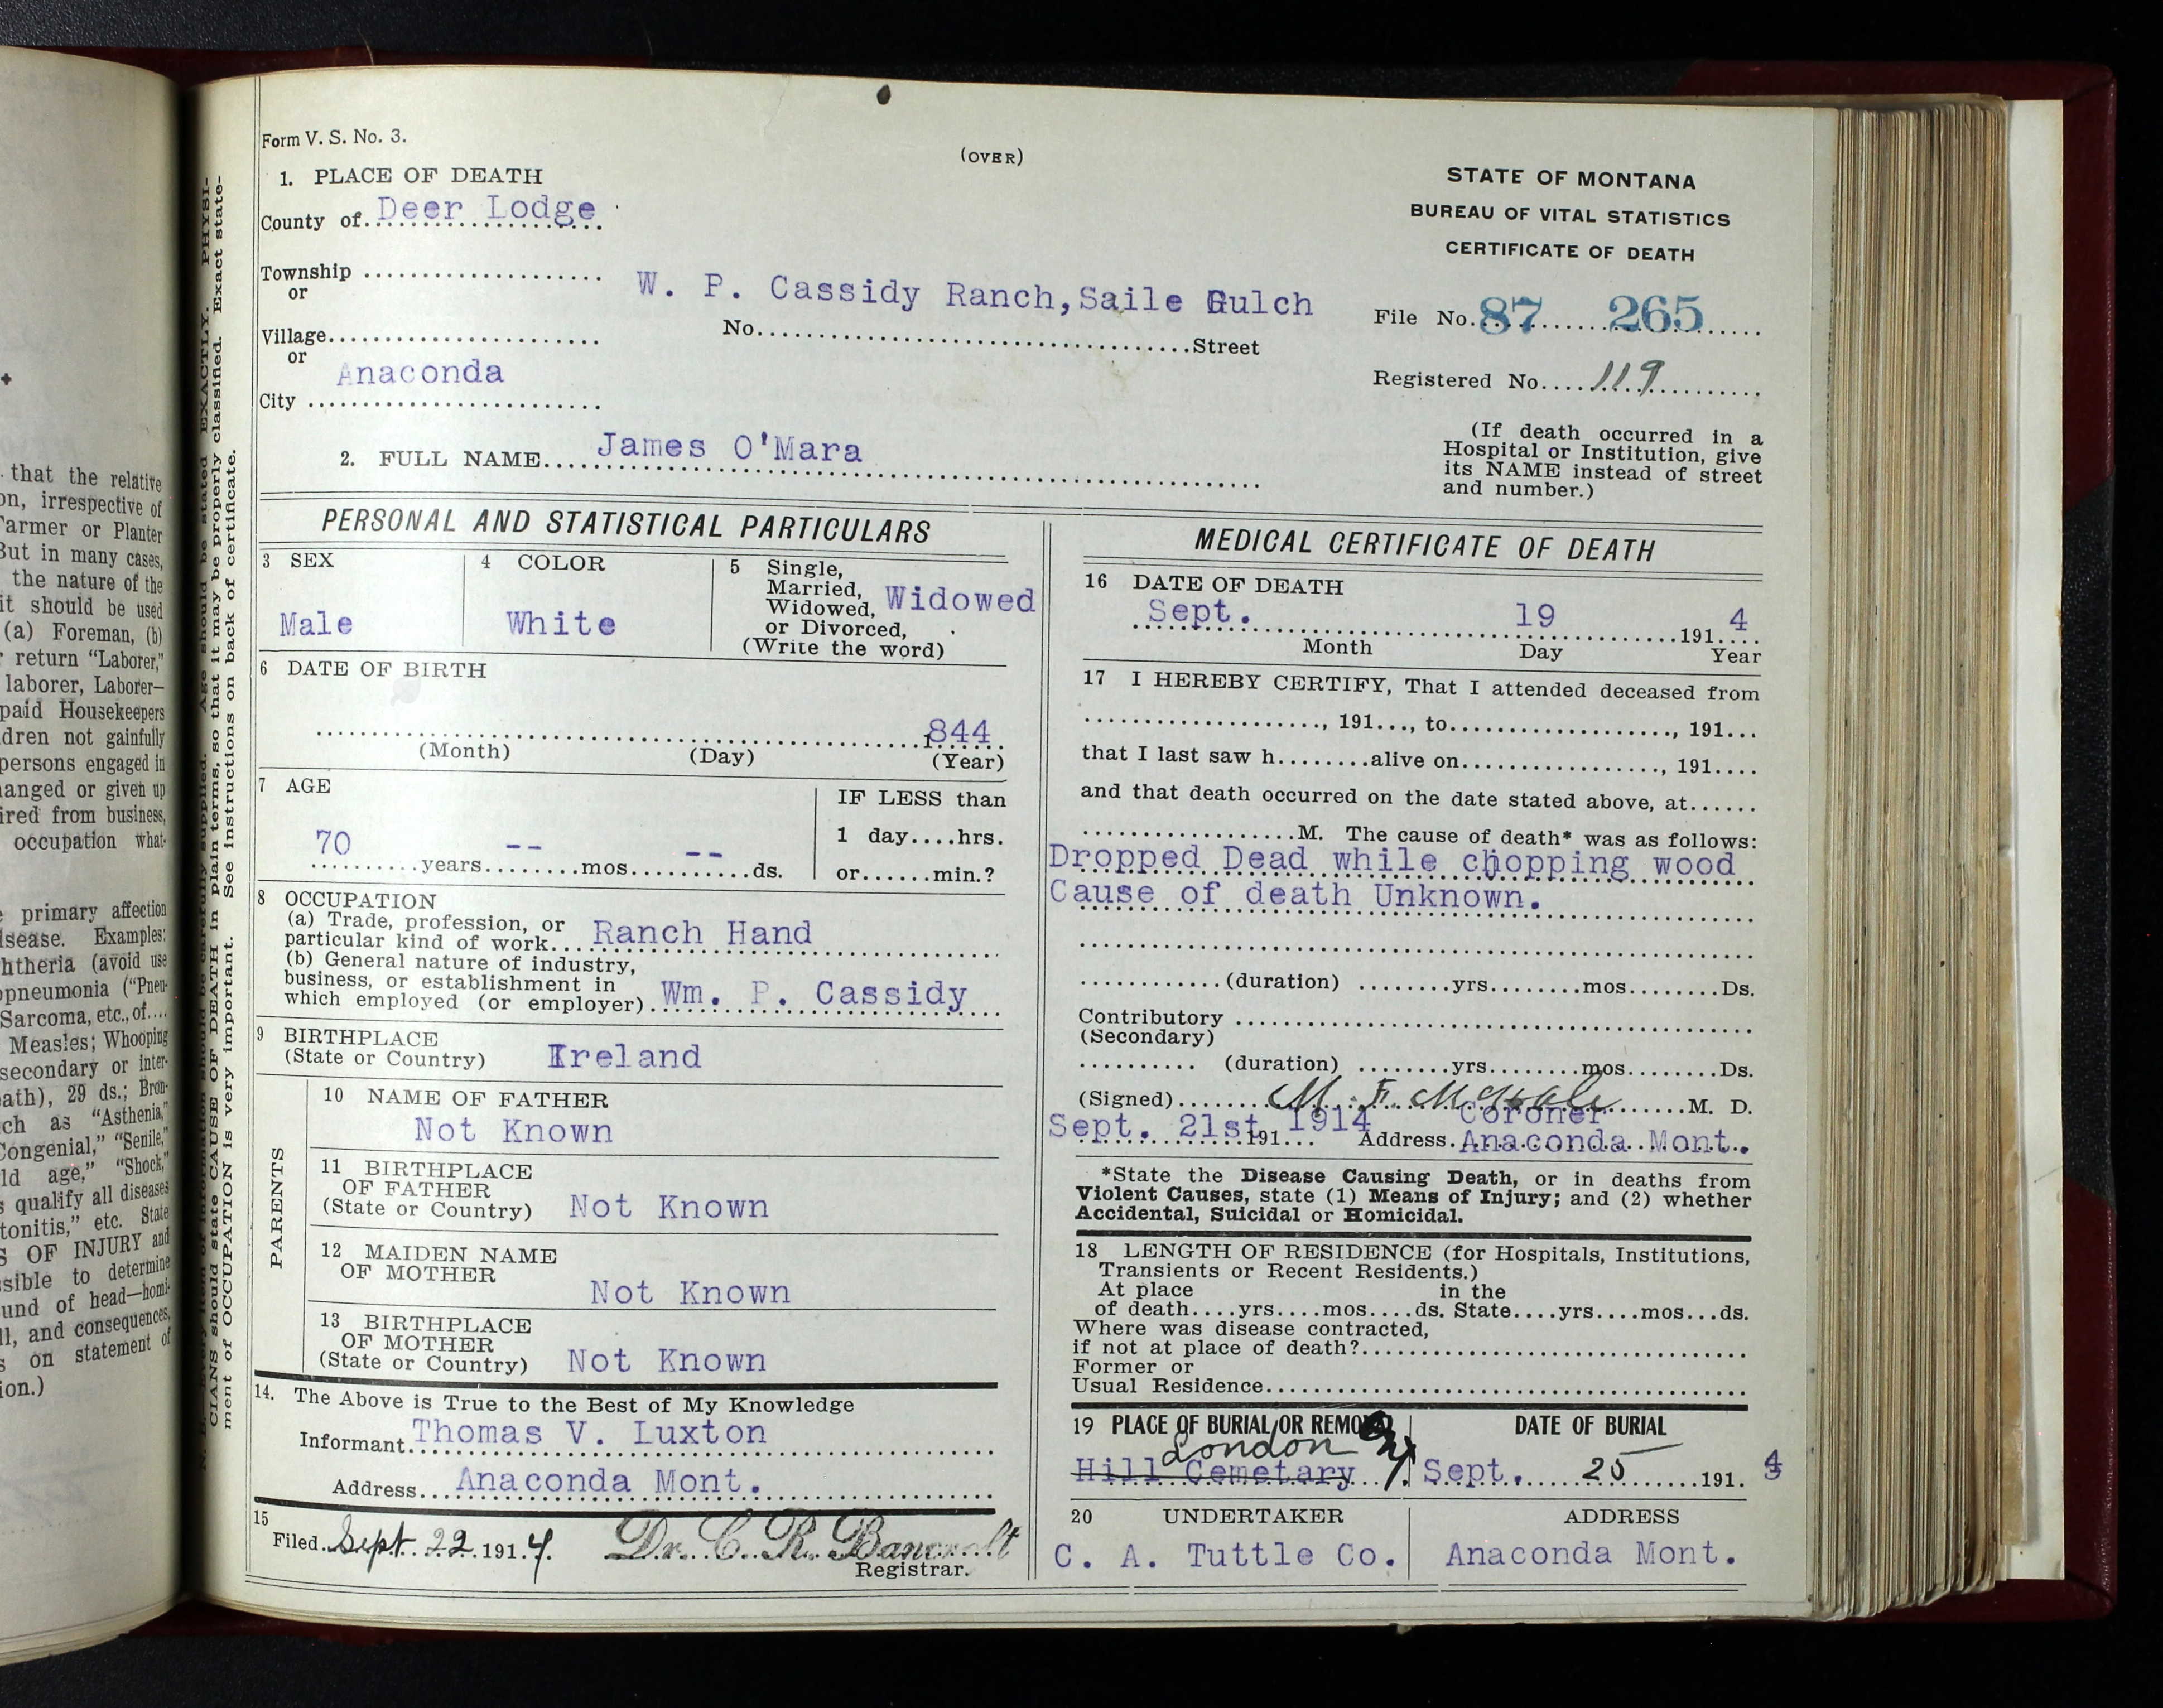 that the relative
on, irrespective of
Farmer or Planter
But in many cases,
the nature of the
it should be used
(a) Foreman, (b)
return "Laborer,"
laborer, Laborer—
paid Housekeepers
dren not gainfully
persons engaged in
anged or given up
ired from business,
occupation what-
primary affection
isease. Examples:
htheria (avoid use
opneumonia ("Pneu-
Sarcoma, etc., of....
Measles; Whooping
secondary or inter-
ath), 29 ds.; Bron-
ch as "Asthenia,"
Congenial," "Senile,"
ld age," "Shock,"
s qualify all diseases
tonitis," etc. State
S OF INJURY and
ssible to determine
und of head—homi-
ll, and consequences,
s on statement of
ion.)
should be carefully supplied. Age should be stated EXACTLY. PHYSI-
CIANS should state CAUSE OF DEATH in plain terms, so that it may be properly classified. Exact state-
ment of OCCUPATION is very important. See instructions on back of certificate.
Form V. S. No. 3.
(OVER)
1. PLACE OF DEATH
County of Deer Lodge
Township
or
W. P. Cassidy Ranch, Saile Gulch
Village
No. Street
or
Anaconda
City
2. FULL NAME James O'Mara
STATE OF MONTANA
BUREAU OF VITAL STATISTICS
CERTIFICATE OF DEATH
File No. 87 265
Registered No. 119
(If death occurred in a
Hospital or Institution, give
its NAME instead of street
and number.)
PERSONAL AND STATISTICAL PARTICULARS
3 SEX
Male
4 COLOR
White
5 Single,
Married,
Widowed,
or Divorced,
(Write the word)
Widowed
6 DATE OF BIRTH
1844
(Month) (Day) (Year)
7 AGE
70 years -- mos. -- ds.
IF LESS than
1 day....hrs.
or......min.?
8 OCCUPATION
(a) Trade, profession, or
particular kind of work Ranch Hand
(b) General nature of industry,
business, or establishment in
which employed (or employer) Wm. P. Cassidy
9 BIRTHPLACE
(State or Country) Ireland
PARENTS
10 NAME OF FATHER
Not Known
11 BIRTHPLACE
OF FATHER
(State or Country) Not Known
12 MAIDEN NAME
OF MOTHER
Not Known
13 BIRTHPLACE
OF MOTHER
(State or Country) Not Known
14. The Above is True to the Best of My Knowledge
Informant Thomas V. Luxton
Address Anaconda Mont.
15
Filed Sept 22 1914. Dr. C. R. Bancroft
Registrar.
MEDICAL CERTIFICATE OF DEATH
16 DATE OF DEATH
Sept. 19 1914
Month Day Year
17 I HEREBY CERTIFY, That I attended deceased from
, 191..., to , 191...
that I last saw h........alive on , 191....
and that death occurred on the date stated above, at......
M. The cause of death* was as follows:
Dropped Dead while chopping wood
Cause of death Unknown.
(duration) yrs. mos. Ds.
Contributory
(Secondary)
(duration) yrs. mos. Ds.
(Signed) M. F. M. D.
Coroner
Sept. 21st 1914 191... Address Anaconda Mont.
*State the Disease Causing Death, or in deaths from
Violent Causes, state (1) Means of Injury; and (2) whether
Accidental, Suicidal or Homicidal.
18 LENGTH OF RESIDENCE (for Hospitals, Institutions,
Transients or Recent Residents.)
At place in the
of death....yrs....mos....ds. State....yrs....mos...ds.
Where was disease contracted,
if not at place of death?
Former or
Usual Residence
19 PLACE OF BURIAL OR REMOVAL
London
Hill Cemetary
DATE OF BURIAL
Sept. 25 1914
20 UNDERTAKER
C. A. Tuttle Co.
ADDRESS
Anaconda Mont.